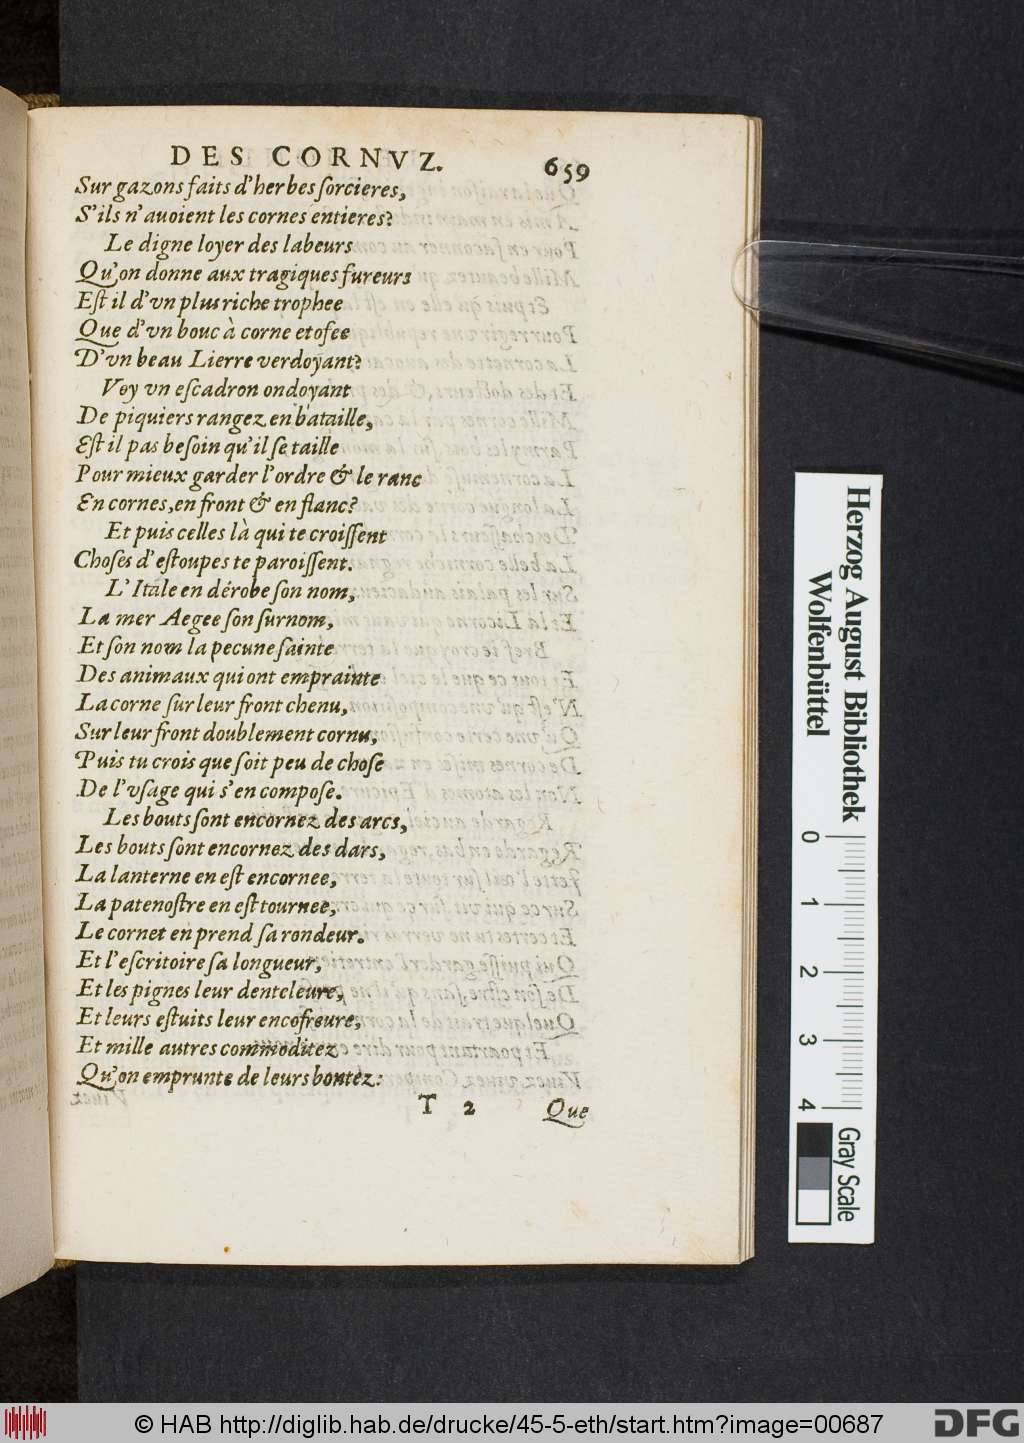 DES CORNVZ. 659
Sur gazons faits d'herbes ſorcieres,
S'ils n'auoient les cornes entieres?
Le digne loyer des labeurs
Qu'on donne aux tragiques fureurs
Eſt il d'vn plus riche trophee
Que d'vn bouc à corne etofee
D'vn beau Lierre verdoyant?
Voy vn eſcadron ondoyant
De piquiers rangez en bataille,
Eſt il pas beſoin qu'il ſe taille
Pour mieux garder l'ordre & le ranc
En cornes, en front & en flanc?
Et puis celles là qui te croiſſent
Choſes d'eſtoupes te paroiſſent.
L'Itale en dérobe ſon nom,
La mer Aegee ſon ſurnom,
Et ſon nom la pecune ſainte
Des animaux qui ont emprainte
La corne ſur leur front chenu,
Sur leur front doublement cornu,
Puis tu crois que ſoit peu de choſe
De l'vſage qui s'en compoſe.
Les bouts ſont encornez des arcs,
Les bouts ſont encornez des dars,
La lanterne en eſt encornee,
La patenoſtre en eſt tournee,
Le cornet en prend ſa rondeur.
Et l'eſcritoire ſa longueur,
Et les pignes leur denteleure,
Et leurs eſtuits leur encofreure,
Et mille autres commoditez
Qu'on emprunte de leurs bontez:
T 2 Que
Herzog August Bibliothek
Wolfenbüttel
0 1 2 3 4
Gray Scale
© HAB http://diglib.hab.de/drucke/45-5-eth/start.htm?image=00687
DFG